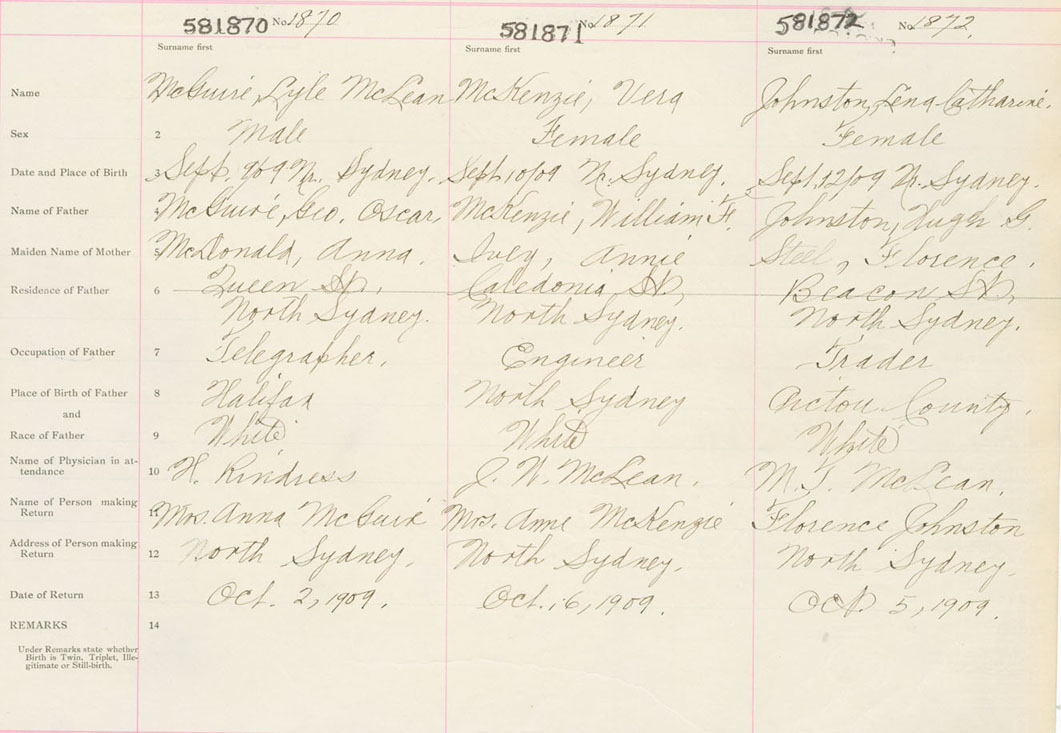 581870 No. 1870 581871 No. 1871 581872 No. 1872
Surname first Surname first Surname first
Name McGuire, Lyle McLean McKenzie, Vera Johnston, Lena Catharine.
Sex 2 Male Female Female
Date and Place of Birth 3 Sept. 9 09 Nr. Sydney. Sept, 10/09 Nr. Sydney. Sept, 12/09 Nr. Sydney.
Name of Father McGuire, Geo. Oscar McKenzie, William F. Johnston, Hugh G.
Maiden Name of Mother 5 McDonald, Anna. Ivey, Annie Steel, Florence.
Residence of Father 6 Queen St, Caledonia St, Beacon St,
North Sydney. North Sydney. North Sydney.
Occupation of Father 7 Telegrapher. Engineer Trader
Place of Birth of Father 8 Halifax North Sydney Pictou County.
and
Race of Father 9 White White White
Name of Physician in at-
tendance 10 H. Rindress J. W. McLean. M. T. McLean.
Name of Person making
Return 11 Mrs. Anna McGuire Mrs. Anne McKenzie Florence Johnston
Address of Person making
Return 12 North Sydney. North Sydney. North Sydney.
Date of Return 13 Oct. 2, 1909. Oct. 6, 1909. Oct. 5, 1909.
REMARKS 14
Under Remarks state whether
Birth is Twin, Triplet, Ille-
gitimate or Still-birth.